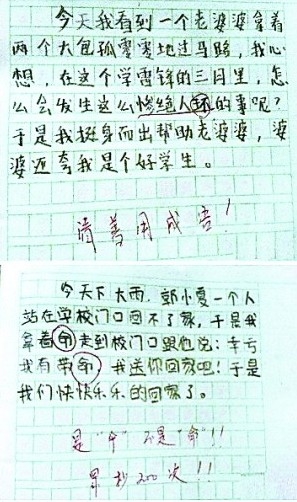 今天我看到一个老婆婆拿着
两个大包孤零零地过马路，我心
想，在这个学雷锋的三月里，怎
么会发生这么惨绝人环的事呢？
于是我挺身而出帮助老婆婆，婆
婆还夸我是个好学生。
请善用成语！
今天下大雨，郭小雯一个人
站在学校门口回不了家，于是我
拿着命走到校门口跟他说：幸亏
我有带命，我送你回家吧！于是
我们快快乐乐的回家了。
是"伞"不是"命"！！
罪抄200次！！